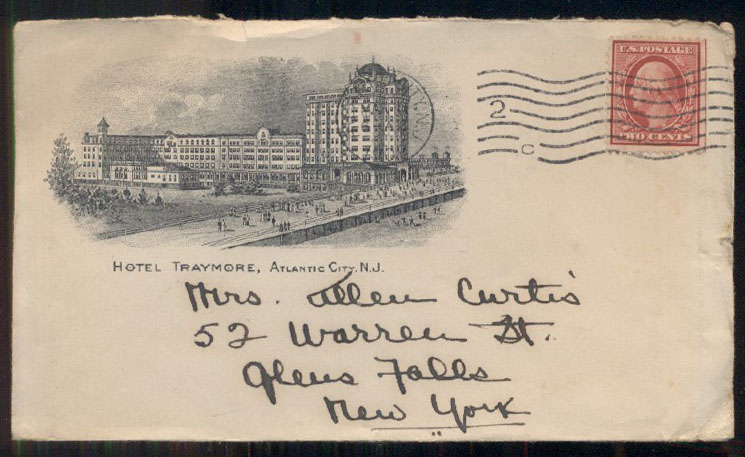 U.S. POSTAGE
TWO CENTS
2
C
HOTEL TRAYMORE, ATLANTIC CITY, N.J.
Mrs. Allen Curtis
52 Warren St.
Glens Falls
New York